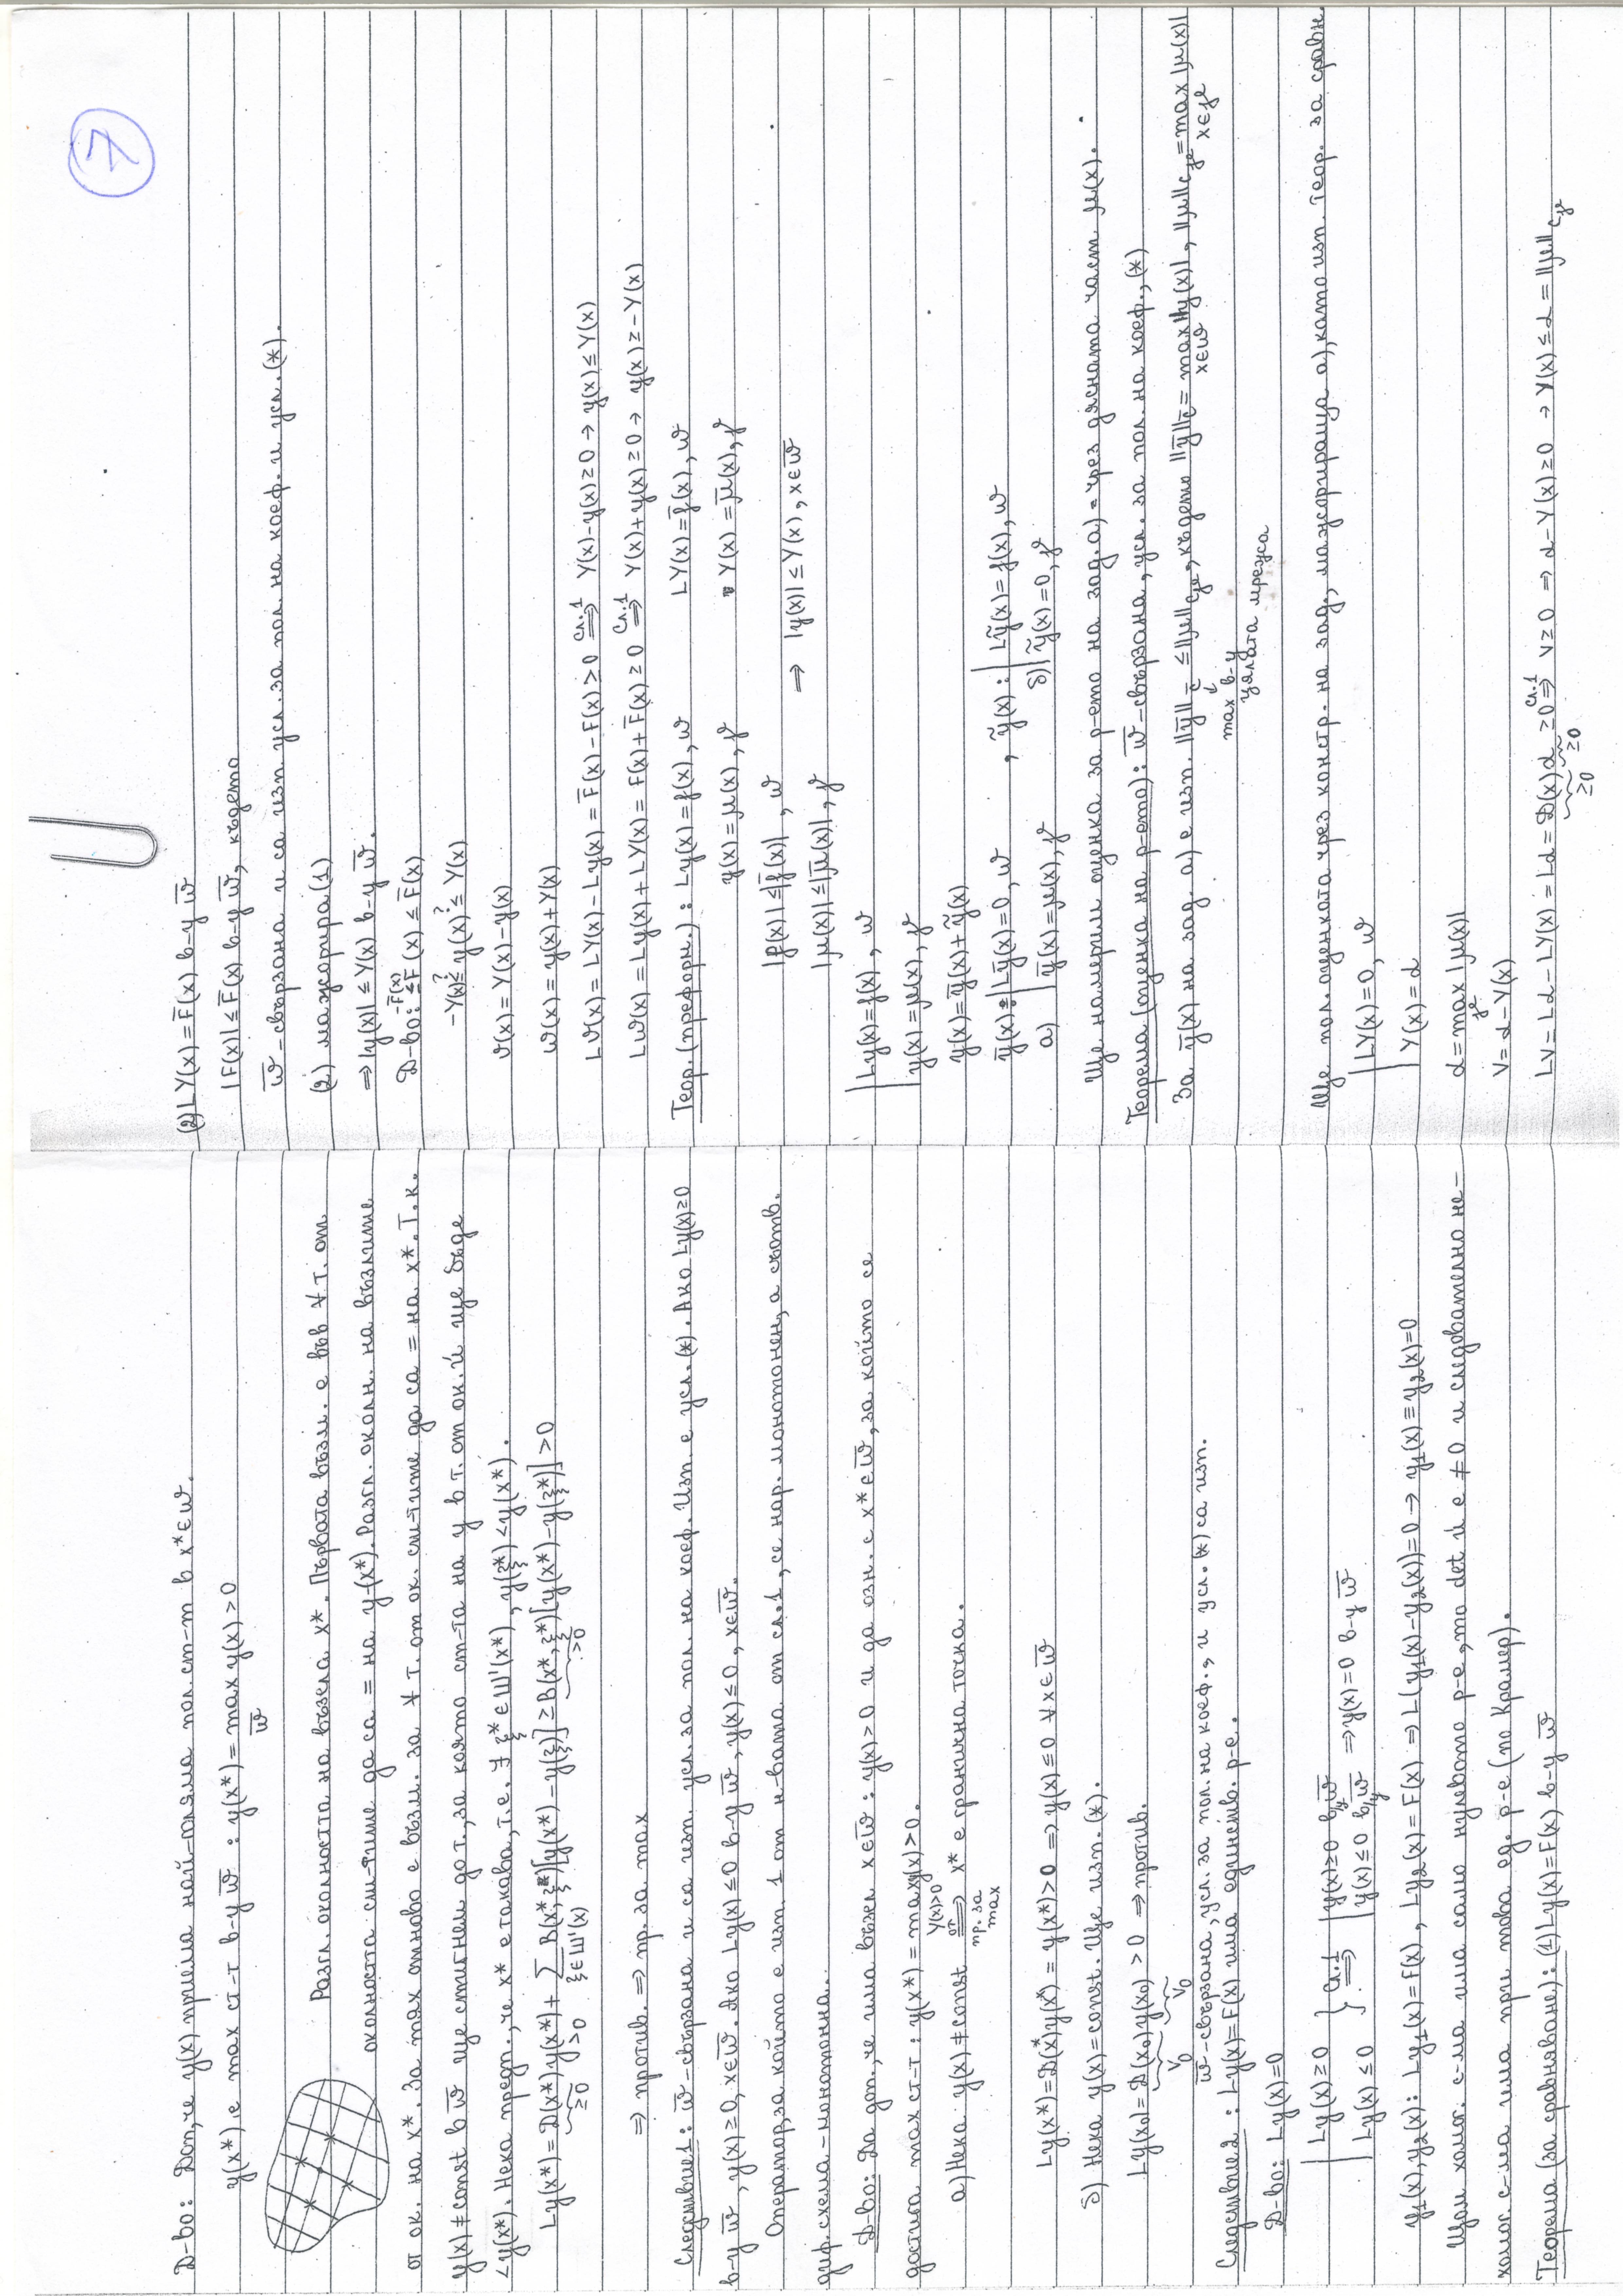 Д-во: Доп., че y(x) приема най-голяма пол. ст-т в x*∈ω.
y(x*) е max ст-т в-у ω̅ : y(x*) = max y(x) > 0
ω̅
Разгл. околността на възела x*. Първата възм. е във ∀ т. от
околността ст-тите да са = на y(x*). Разгл. околн. на възлите
от ок. на x*. За тях отново е възм. за ∀ т. от ок. ст-тите да са = на x*. Т.к.
y(x) ≠ const в ω̅ ще стигнем до т., за която ст-та на y в т. от ок. ѝ ще бъде
< y(x*). Нека предп., че x* е такава, т.е. ∃ ξ* ∈ Ш'(x*), y(ξ*) < y(x*).
Ly(x*) = D(x*)y(x*) + ∑ B(x*,ξ)[y(x*) - y(ξ)] ≥ B(x*,ξ*)[y(x*) - y(ξ*)] > 0
≥0 >0 ξ∈Ш'(x) >0
⇒ против. ⇒ пр. за max
Следствие 1: ω̅ - свързана и са изп. усл. за пол. на коеф. Изп. е усл. (*). Ако Ly(x) ≥ 0
в-у ω̅, y(x) ≥ 0, x∈ω̅. Ако Ly(x) ≤ 0 в-у ω̅, y(x) ≤ 0, x∈ω̅.
Оператор, за който е изп. 1 от н-вата от сл. 1, се нар. монотонен, а съотв.
диф. схема - монотонна.
Д-во: Да доп., че има възел x∈ω̅ : y(x) > 0 и да озн. с x*∈ω̅, за който се
достига max ст-т : y(x*) = max y(x) > 0.
а) Нека y(x) ≠ const ⇒ x* е гранична точка.
y(x)>0
от
пр. за
max
Ly(x*) = D(x*)y(x*) = y(x*) > 0 ⇒ y(x) ≤ 0 ∀x∈ω̅
б) Нека y(x) = const. Ще изп. (*).
Ly(x₀) = D(x₀)y(x₀) > 0 ⇒ против.
V0 V0
ω̅ - свързана, усл. за пол. на коеф., и усл. (*) са изп.
Следствие 2 : Ly(x) = F(x) има единств. р-е.
Д-во: Ly(x) = 0
Ly(x) ≥ 0 } сл.1 ⇒ y(x) ≥ 0 в-у ω̅
Ly(x) ≤ 0 } y(x) ≤ 0 в-у ω̅ ⇒ y(x) = 0 в-у ω̅
y₁(x), y₂(x) : Ly₁(x) = F(x), Ly₂(x) = F(x) ⇒ L(y₁(x) - y₂(x)) = 0 → y₁(x) ≡ y₂(x) = 0
Щом хомог. с-ма има само нулевото р-е, то det ѝ е ≠ 0 и следователно не-
хомог. с-ма има при това ед. р-е (по Крамер).
Теорема (за сравняване): (1) Ly(x) = F(x) в-у ω̅
(2) LY(x) = F̅(x) в-у ω̅
|F(x)| ≤ F̅(x) в-у ω̅, където
ω̅ - свързана и са изп. усл. за пол. на коеф. и усл. (*).
(2) мажорира (1)
⇒ |y(x)| ≤ Y(x) в-у ω̅.
Д-во: -F̅(x) ≤ F(x) ≤ F̅(x)
-Y(x) ≤? y(x) ≤? Y(x)
ϑ(x) = Y(x) - y(x)
w(x) = y(x) + Y(x)
Lϑ(x) = LY(x) - Ly(x) = F̅(x) - F(x) > 0 сл.1 ⇒ Y(x) - y(x) ≥ 0 → y(x) ≤ Y(x)
Lw(x) = Ly(x) + LY(x) = F(x) + F̅(x) ≥ 0 сл.1 ⇒ Y(x) + y(x) ≥ 0 → y(x) ≥ -Y(x)
Теор. (преформ.) : Ly(x) = f(x), ω LY(x) = f̅(x), ω
y(x) = μ(x), γ Y(x) = μ̅(x), γ
|f(x)| ≤ |f̅(x)|, ω
⇒ |y(x)| ≤ Y(x), x∈ω̅
|μ(x)| ≤ |μ̅(x)|, γ
Ly(x) = f(x), ω
y(x) = μ(x), γ
y(x) = y̅(x) + ỹ(x)
y̅(x): Ly̅(x) = 0, ω , ỹ(x): Lỹ(x) = f(x), ω
а) y̅(x) = μ(x), γ б) ỹ(x) = 0, γ
Ще намерим оценка за р-ето на зад. а) = чрез дясната част μ(x).
Теорема (оценка на р-ето): ω̅ - свързана, усл. за пол. на коеф., (*)
За y̅(x) на зад. а) е изп. ||y̅||c̅ ≤ ||μ||cγ, където ||y̅||c̅ = max |y(x)|, ||μ||cγ = max |μ(x)|
x∈ω̅ x∈γ
max в-у
цялата мрежа
Ще пол. оценката чрез констр. на зад., мажорираща а), като изп. Теор. за сравн.
LY(x) = 0, ω
Y(x) = α
α = max |μ(x)|
γ
V = α - Y(x)
LV = Lα - LY(x) = Lα = D(x)α ≥ 0 сл.1 ⇒ V ≥ 0 ⇒ α - Y(x) ≥ 0 → Y(x) ≤ α = ||μ||cγ
≥0 ≥0
7